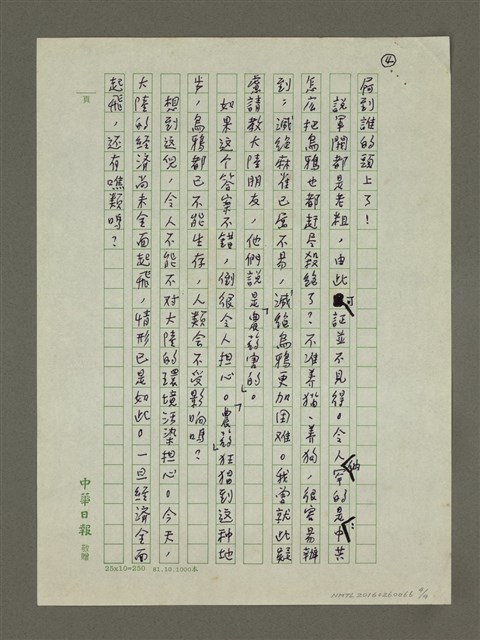 ④
屙到誰的頭上了!
說軍閥都是老粗,由此可証並不見得。令人納罕的是:中共
怎広把烏鴉也都赶尽殺絕了?不准养猫、养狗,很容易辦
到;滅絕麻雀已属不易,滅絕烏鴉更加困难。我曾就此疑
案請教大陸朋友,他們說是「農葯害的」。
如果这个答案不錯,倒很令人担心。「農葯」狂猖到这种地
步,烏鴉都已不能生存,人類会不受影响嗎?
想到这儿,令人不能不对大陸的環境污染担心。今天,
大陸的経済尚未全面起飛,情形已是如此。一旦経済全面
起飛,还有噍類嗎?
頁
中華日報 敬贈
25x10=250 81.10.1000本
NMTL20160260066 4/4